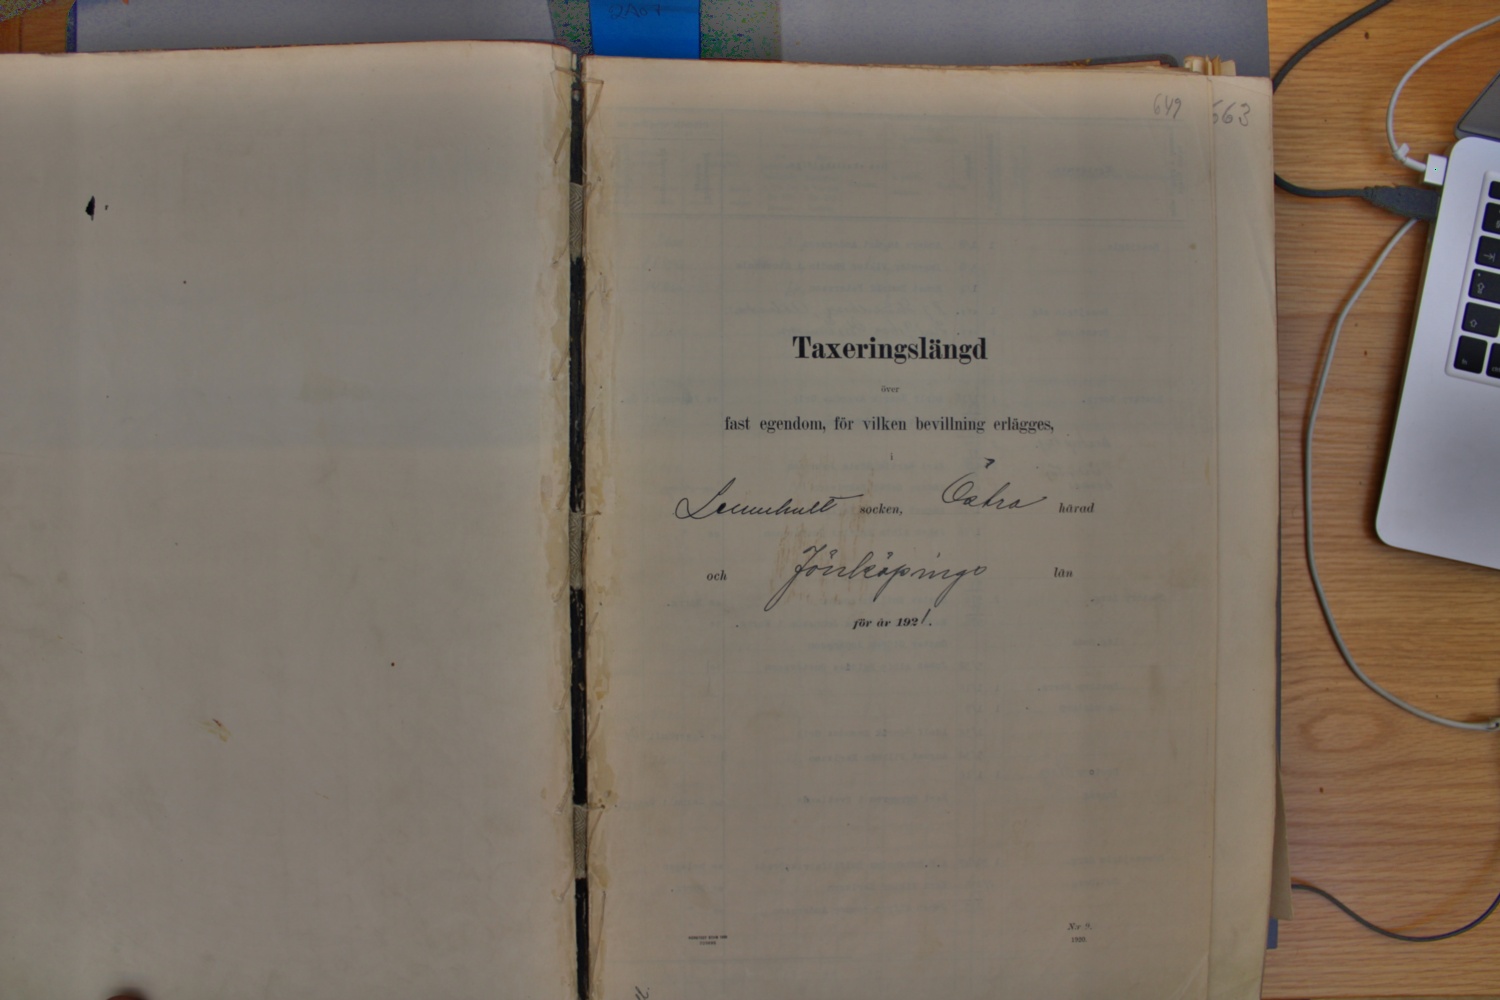 649
663
Taxeringslängd
över
fast egendom, för vilken bevillning erlägges,
i
Lannhult socken, Östra härad
och Jönköpings län
för år 1921.
N:r 9.
1920